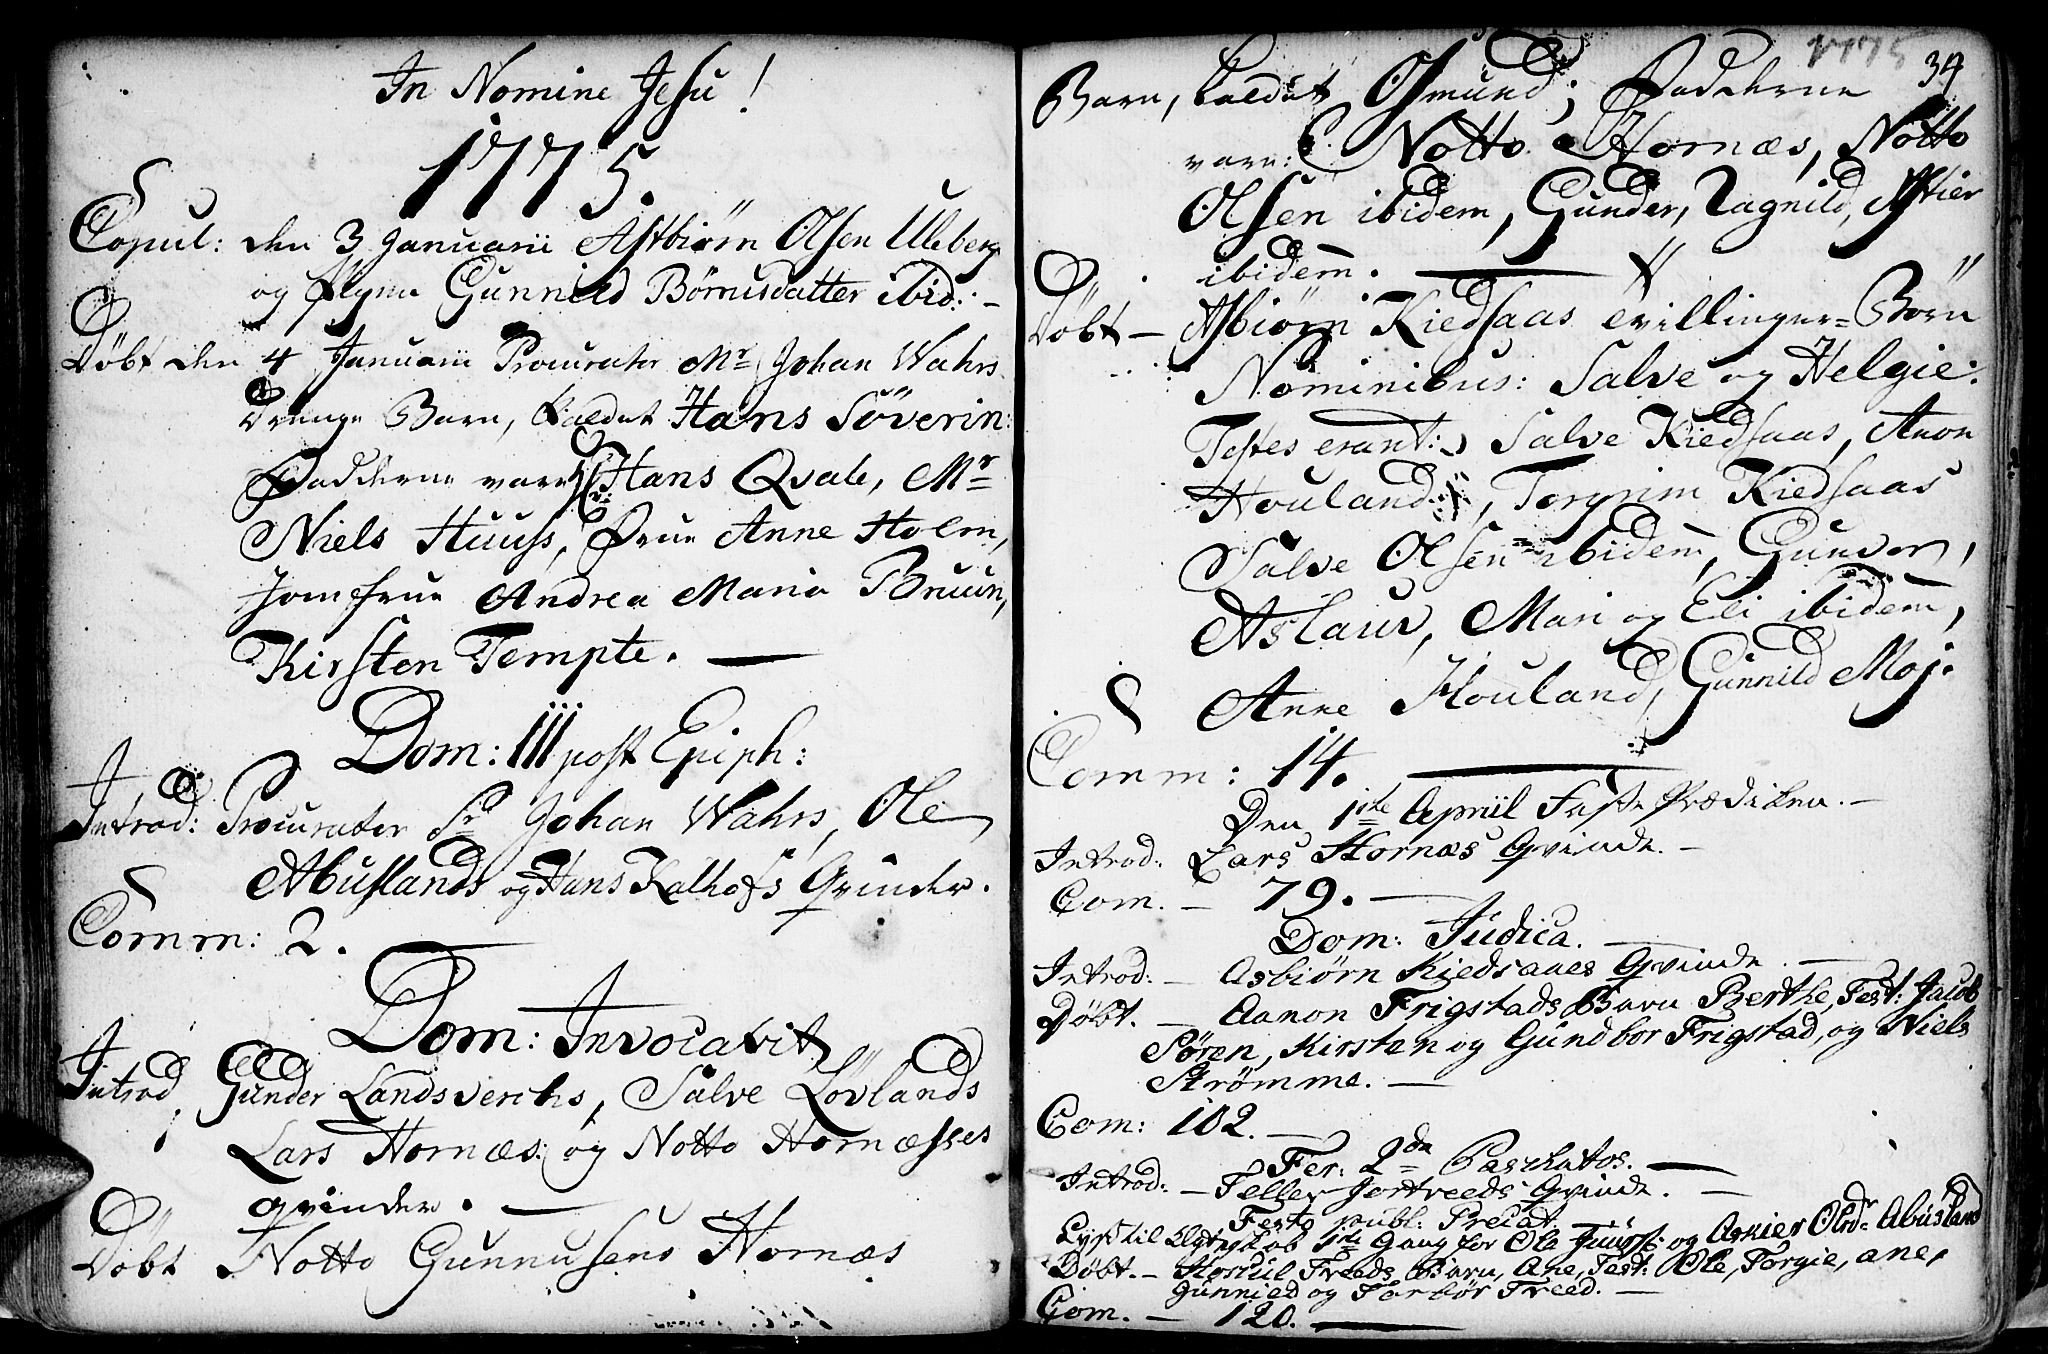 In Nomine Jesu!
1775.
Copul: den 3 Januarii Astbiørn Olsen Uleberg
og Pigen Gunnild Börnisdatter ibid: -
Döbt den 4 Januarii Procurator Mr Johan Wahrs
Drenge Barn, kaldet Hans Söverin:
Fadderne vare Hans Qvale, Mr
Niels Huuss, Frue Anne Holm,
Jomfrue Andrea Maria Bruun,
Kirsten Tempte. —
Dom: III post Epiph:
Introd: Procurator Sr Johan Wahrs, Ole
Abuslands og Hans Kalhofs Qvinder.
Comm: 2.
Dom: Invocavit
Introd: Gunder Landsverchs, Salve Lövlands
Lars Hornæs: og Notto Hornæsses
qvinder. —
Döbt Notto Gunnusens Hornæs
1775 34
Barn, kaldet Osmund; Fadderne
vare: Notto Hornæs, Notto
Olsen ibidem, Gunder, Ragnild, Astier
ibidem. —
Döbt — Asbiörn Kiedsaas tvillinger=Börn
Nominibus: Salve og Helgie:
Testes erant: Salve Kiedsaas, Anon
Houland, Torgrim Kiedsaas
Salve Olsen ibidem, Gunvor,
Aslaug, Mari og Eli ibidem,
Anne Houland, Gunnild Moj.
Comm: 14. —
Den 1ste April Faste Prædiken. —
Introd: Lars Hornæs Qvinde. —
Com. — 79. —
Dom: Judica. —
Introd: — Asbiørn Kiedsaaes Qvinde. —
Döbt. — Aanon Frigstads Barn Berthe, Test: Jacob
Sören, Kirsten og Gundbor Frigstad, og Niels
Strømme. —
Com: 102. —
Fer: 2da Paschatos. —
Introd: — Teller Jortveeds Qvinde. —
Festo publ: Precat.
Lyst til Ægteskab 1ste Gang for Ole og Asnier Olsdr Abusland
Döbt. — Freeds Barn, Ane, Test: Ole, Torgie, ane,
Gunnild og Torbör Freed. —
Com. — 120. —